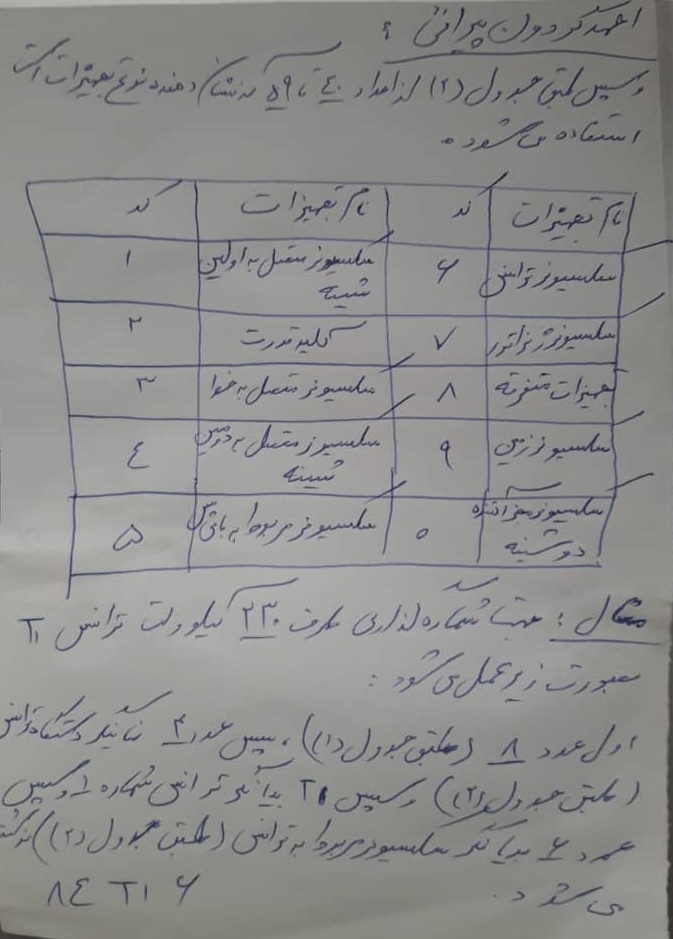 احمد گردون پیرانی :
و سپس طبق جدول (۲) از اعداد ۰ تا ۹ که نشان دهنده نوع تجهیزات است
استفاده می شود .
نام تجهیزات کد نام تجهیزات کد
سکسیونر ترانس ۶ سکسیونر متصل به اولین شینه ۱
سکسیونر ژنراتور ۷ کلید قدرت ۲
تجهیزات متفرقه ۸ سکسیونر متصل به خط ۳
سکسیونر زمین ۹ سکسیونر متصل به دومین شینه ٤
سکسیونر جدا کننده دو شینه ۰ سکسیونر مربوط به بای پاس ۵
مثال : جهت شماره گذاری طرف ۲۳۰ کیلو ولت ترانس T۱
بصورت زیر عمل می شود :
اول عدد ۸ (طبق جدول (۱)) ، سپس عدد ٤ نمایانگر دستگاه ترانس
(طبق جدول (۲)) و سپس T۱ بیانگر ترانس شماره ۱ و سپس
عدد ۶ بیانگر سکسیونر مربوط به ترانس (طبق جدول (۲))
می شود .
۸٤ T۱ ۶